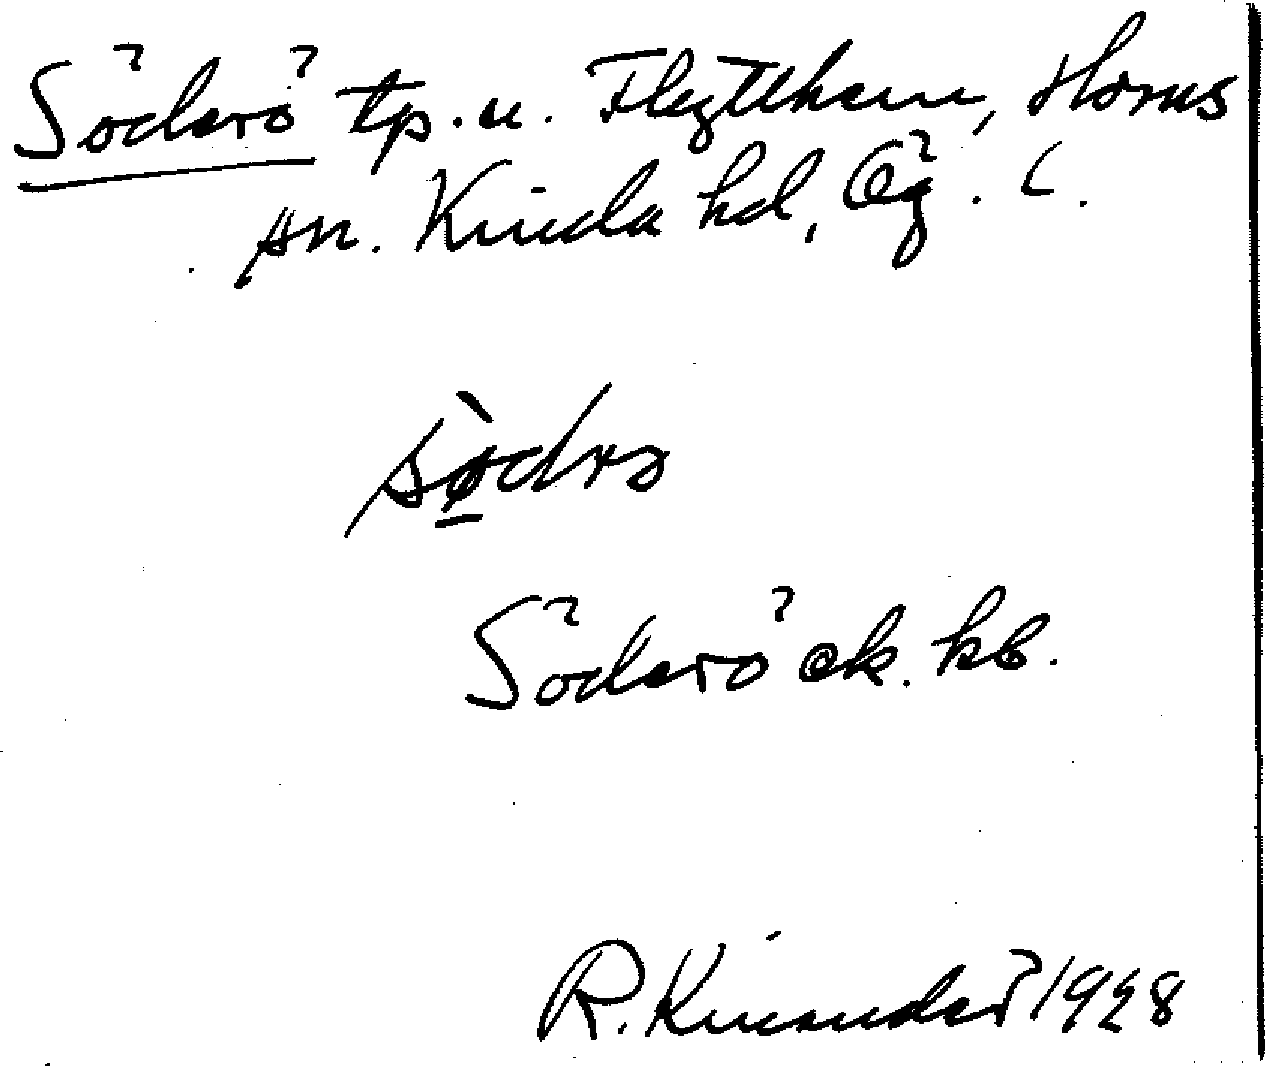 Söderö tp. u. Flytthem, Horns
sn. Kinda hd, Ög. L.
sø̀drə
Söderö ek. kb.
R. Kinander 1928